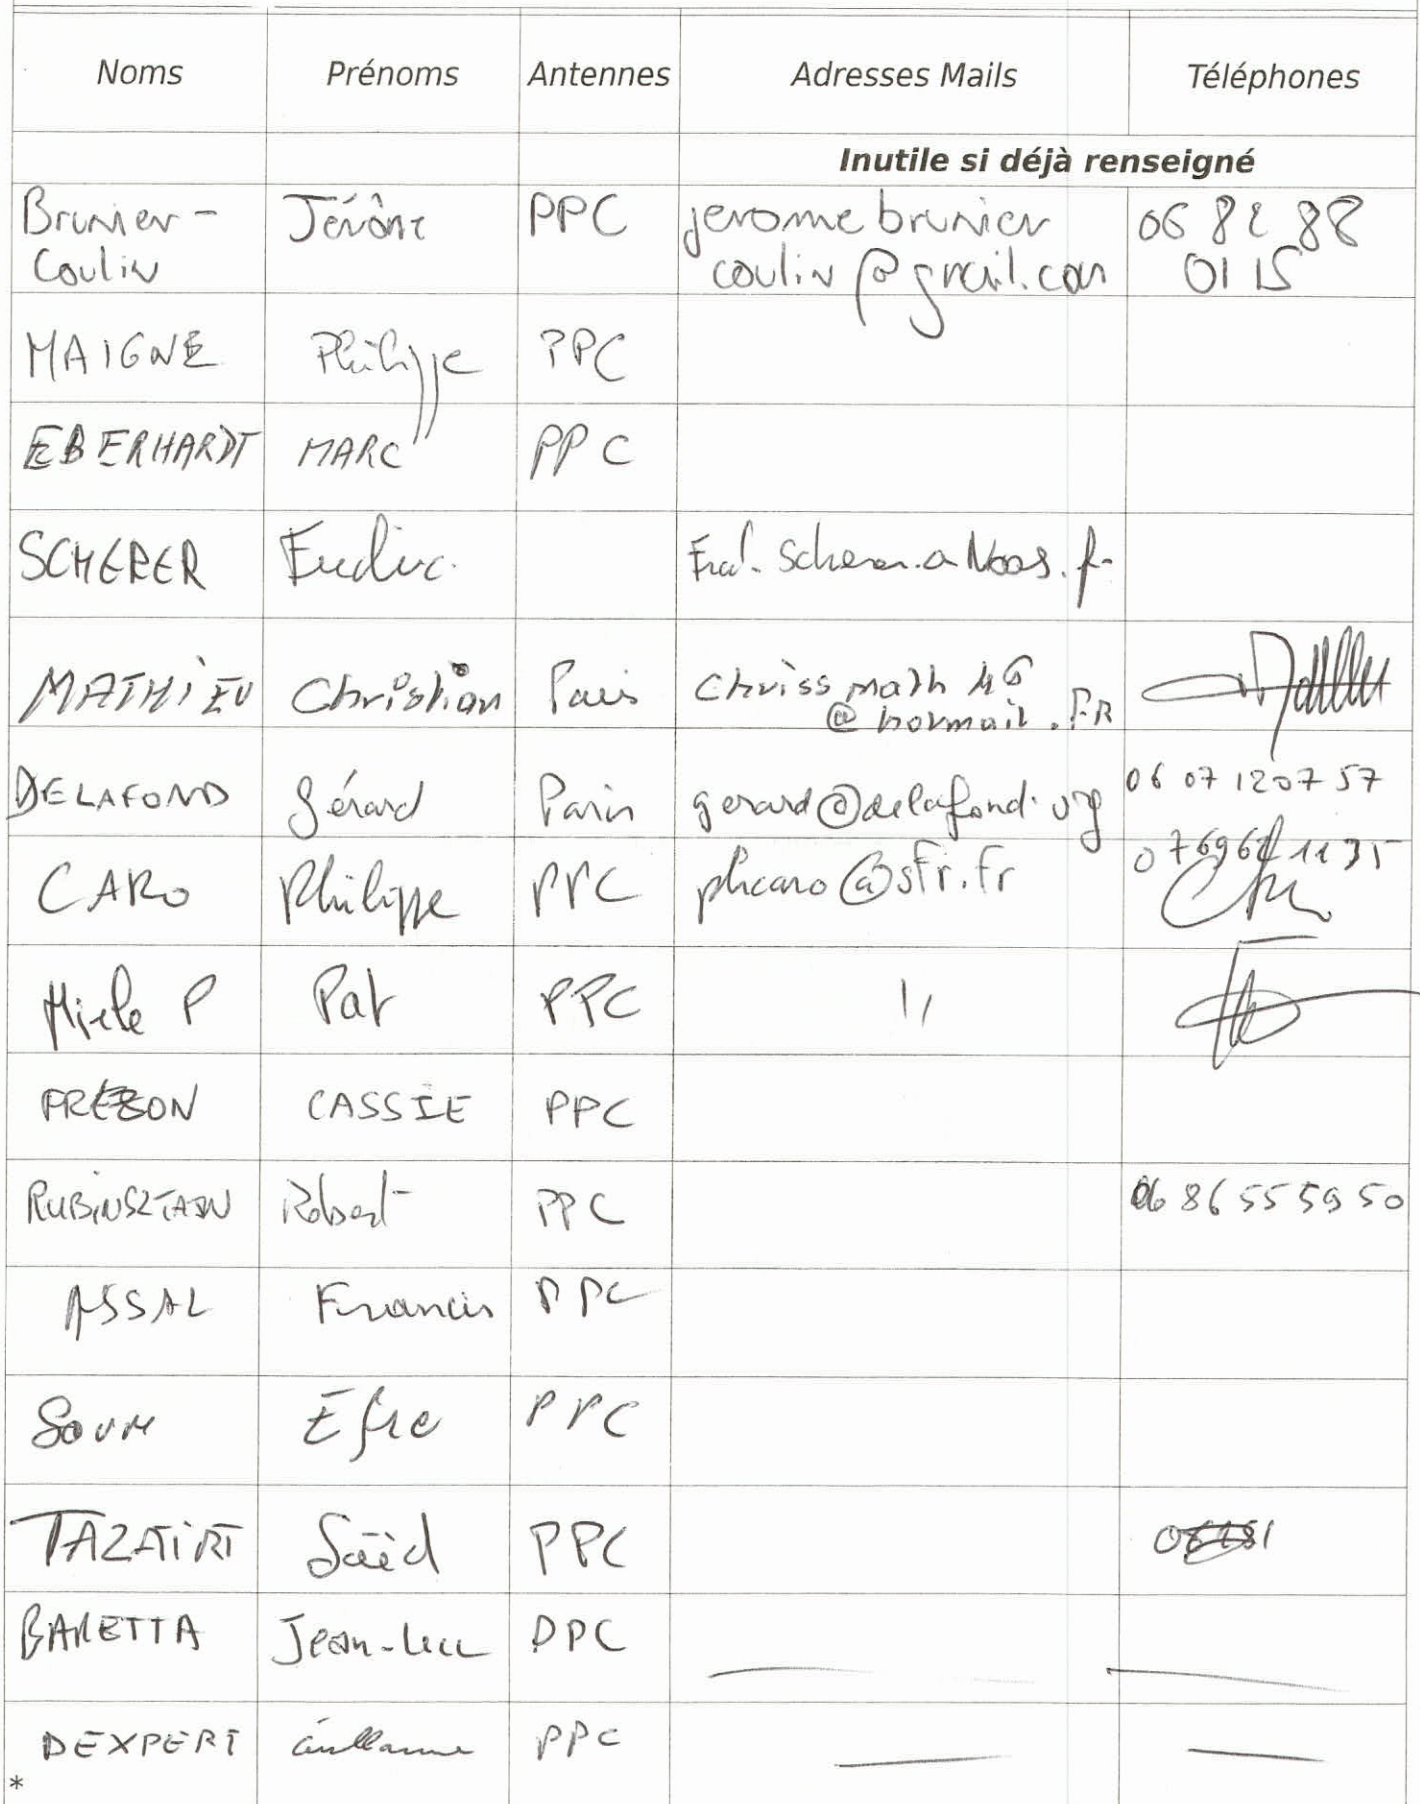 Noms Prénoms Antennes Adresses Mails Téléphones
Inutile si déjà renseigné
Brunier - Jérôme PPC jerome brunier 06 82 88
Coulin coulin @ gmail.com 01 15
MAIGNE Philippe PPC
EBERHARDT MARC PPC
SCHERER
MATHiEU Christian Paris Chriss math 46
@ hotmail . FR
DELAFOND Gérard Paris gerard@delafond.org 06 07 120757
CARO Philippe PPC phcaro@sfr.fr
Miele P Pat PPC \\
CASSIE PPC
Robert PPC 06 86 55 59 50
ASSAL Francis PPC
PPC
TAZAiRT Saïd PPC
BARETTA Jean-Luc PPC
DEXPERT Guillaume PPC
*